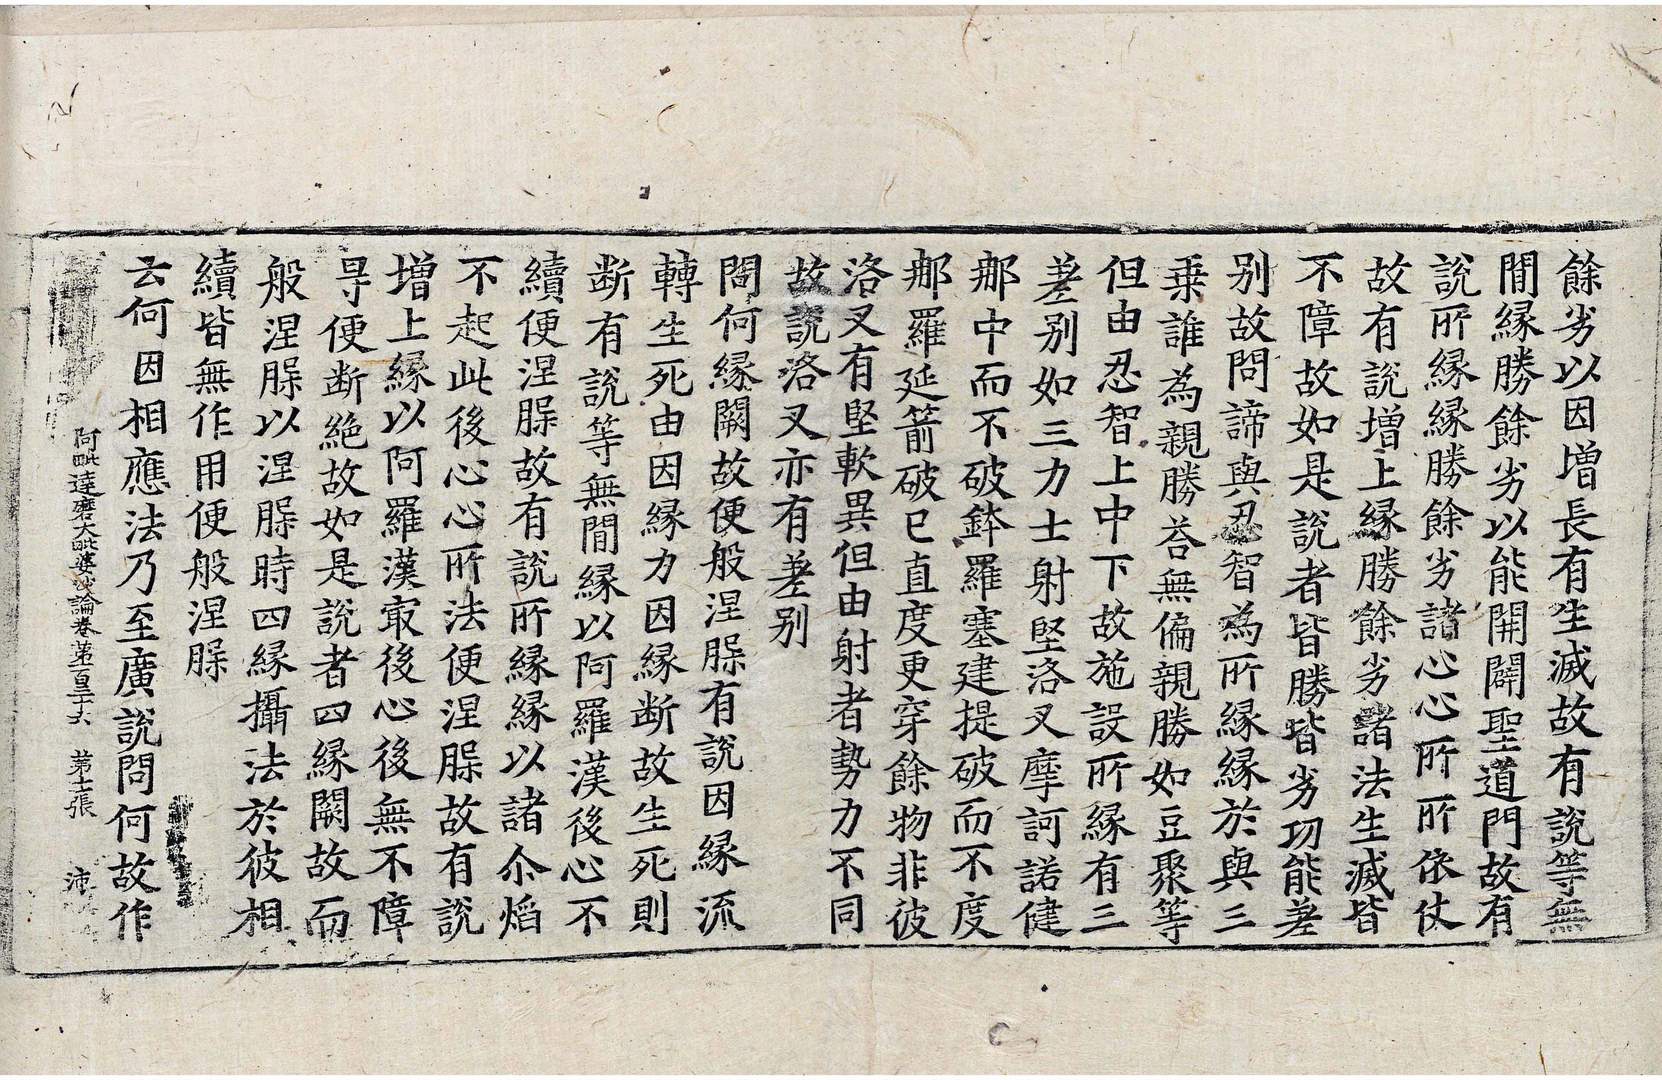 餘劣以因增長有生滅故有說等無
間縁勝餘劣以能開闢聖道門故有
說所縁縁勝餘劣諸心心所所依仗
故有說增上縁勝餘劣諸法生滅皆
不障故如是說者皆勝皆劣功能差
别故問諦與忍智為所縁縁於與三
乗誰為親勝荅無偏親勝如豆聚等
但由忍智上中下故施設所縁有三
差别如三力士射堅洛叉摩訶諾健
那中而不破鉢羅塞建提破而不度
那羅延箭破已直度更穿餘物非彼
洛叉有堅軟異但由射者勢力不同
故說洛叉亦有差别
問何縁闕故便般涅槃有說因縁流
轉生死由因縁力因縁断故生死則
断有說等無間縁以阿羅漢後心不
續便涅槃故有說所縁縁以諸尒焰
不起此後心心所法便涅槃故有說
增上縁以阿羅漢㝡後心後無不障
㝵便断絶故如是說者四縁闕故而
般涅槃以涅槃時四縁攝法於彼相
續皆無作用便般涅槃
云何因相應法乃至廣說問何故作
阿毗達磨大毗婆沙論卷第一百三十六　第十二張　沛